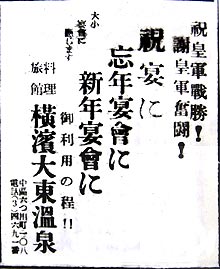 祝皇軍戰勝!
謝皇軍奮鬪!
祝宴に
忘年宴會に
新年宴會に
大小
宴會に
應じます
御利用の程!!
料理
旅館
橫濱大東溫泉
中區六つ川町一〇八
電話(3)四六九一番